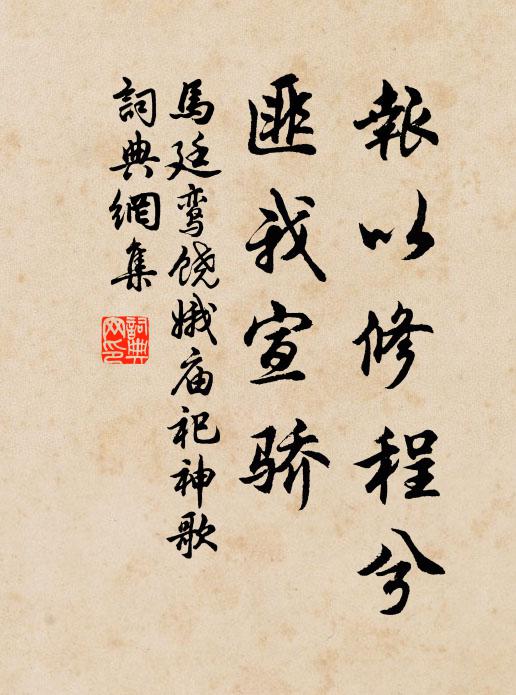 報以修程兮
匪我宣骄
馬廷鸾饶娥庙祀神歌
詞典網集
詞典
网印